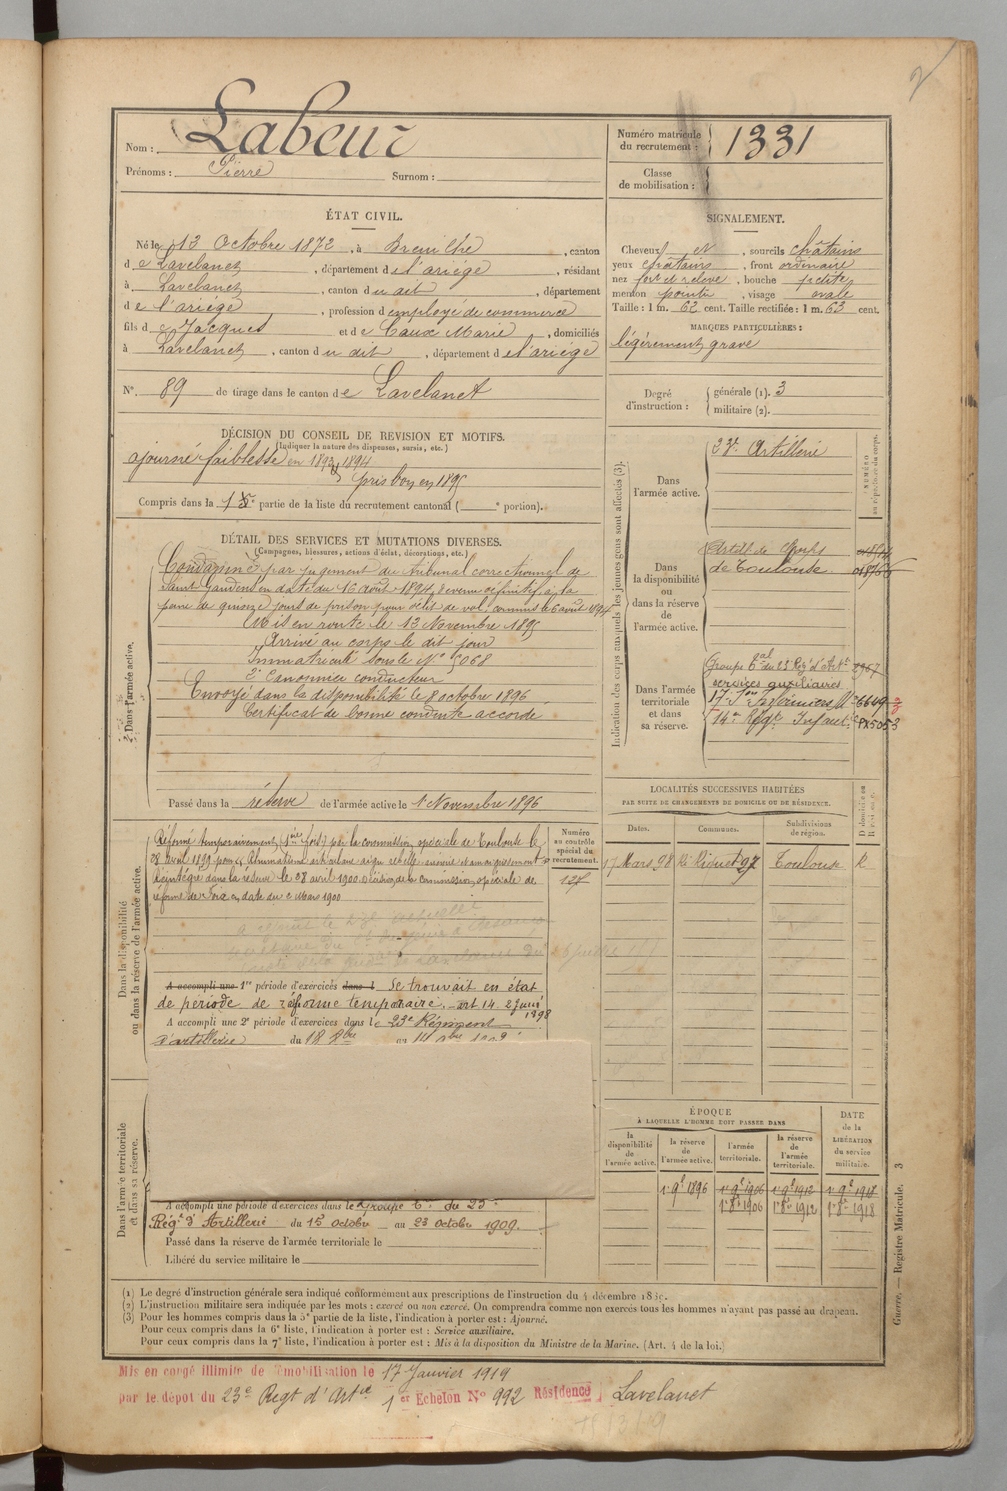 2
Nom : Labeur
Prénoms : Pierre Surnom :
Numéro matricule du recrutement : 1331
Classe de mobilisation :
ÉTAT CIVIL.
Né le 13 Octobre 1872, à Dreuilhe, canton
de Lavelanet, département de l'ariège, résidant
à Lavelanet, canton du dit, département
de l'ariége, profession d'employé de commerce
fils de Jacques et de Caux Marie, domiciliés
à Lavelanet, canton du dit, département de l'ariége
N° 89 de tirage dans le canton de Lavelanet
SIGNALEMENT.
Cheveux et, sourcils châtains
yeux châtains, front ordinaire
nez fort et relevé, bouche petite
menton pointu, visage ovale
Taille : 1 m. 62 cent. Taille rectifiée : 1 m. 63 cent.
MARQUES PARTICULIÈRES :
légérement gravé
Degré d'instruction : générale (1). 3
militaire (2).
DÉCISION DU CONSEIL DE REVISION ET MOTIFS.
(Indiquer la nature des dispenses, sursis, etc.)
ajourné faiblesse en 1893, 1894
pris bon en 1895
Compris dans la 1e partie de la liste du recrutement cantonal ( e portion).
DÉTAIL DES SERVICES ET MUTATIONS DIVERSES.
(Campagnes, blessures, actions d'éclat, décorations, etc.)
Dans l'armée active.
Condamné par jugement du tribunal correctionnel de
Saint Gaudens en date du 16 août 1894, devenu définitif, à la
peine de quinze jours de prison pour délit de vol, commis le 6 août 1894
Mis en route le 13 Novembre 1895
Arrivé au corps le dit jour
Immatriculé sous le N° 5068
2e Canonnier conducteur
Envoyé dans la disponibilité le 8 octobre 1896
Certificat de bonne conduite accordé
Passé dans la réserve de l'armée active le 1 Novembre 1896
Indication des corps auxquels les jeunes gens sont affectés (3).
NUMÉRO au répertoire du corps.
Dans l'armée active.
23e Artillerie
Dans la disponibilité ou dans la réserve de l'armée active.
Artill. de Corps
de Toulouse
Dans l'armée territoriale et dans sa réserve.
Groupe tal du 23 Rég. d'Artie
services auxiliaires
17e Son Infirmiers Mres 6619
14e Régt Infant.
LOCALITÉS SUCCESSIVES HABITÉES
PAR SUITE DE CHANGEMENTS DE DOMICILE OU DE RÉSIDENCE.
Dates. Communes. Subdivisions de région. D domicile ou R résidence.
17 Mars 98 R. Riquet 27 Toulouse R
Dans la disponibilité ou dans la réserve de l'armée active.
Numéro au contrôle spécial du recrutement.
127
Réformé temporairement (1ère fois) par la commission spéciale de Toulouse le
28 avril 1899 pour Rhumatisme articulaire aigu rebelle suivi d'amaigrissement
Réintégré dans la réserve le 28 avril 1900. Décision de la commission spéciale de
réforme de Foix en date du 2 Mars 1900
A accompli une 1re période d'exercices dans l Se trouvait en état
de période de réforme temporaire. art 14. 2 juin 1898
A accompli une 2e période d'exercices dans le 23e Régiment
d'artillerie du 18 8bre au 14 9bre
Dans l'armée territoriale et dans sa réserve.
A accompli une période d'exercices dans le Groupe tal du 23e
Régt d'Artillerie du 15 octobre au 23 octobre 1909.
Passé dans la réserve de l'armée territoriale le
Libéré du service militaire le
ÉPOQUE
À LAQUELLE L'HOMME DOIT PASSER DANS
la disponibilité de l'armée active. la réserve de l'armée active. l'armée territoriale. la réserve de l'armée territoriale. DATE de la LIBÉRATION du service militaire.
1er 9e 1896 1er 9e 1906 1er 9e 1912 1er 9e 1918
1er 8e 1906 1er 8e 1912 1er 8e 1918
(1) Le degré d'instruction générale sera indiqué conformément aux prescriptions de l'instruction du 4 décembre
(2) L'instruction militaire sera indiquée par les mots : exercé ou non exercé. On comprendra comme non exercés tous les hommes n'ayant pas passé au drapeau.
(3) Pour les hommes compris dans la 5e partie de la liste, l'indication à porter est : Ajourné.
Pour ceux compris dans la 6e liste, l'indication à porter est : Service auxiliaire.
Pour ceux compris dans la 7e liste, l'indication à porter est : Mis à la disposition du Ministre de la Marine. (Art. 4 de la loi.)
Guerre. — Registre Matricule. 3
Mis en congé illimité de démobilisation le 17 Janvier 1919
par le dépot du 23e Regt d'Artie 1er Echelon N° 992 Résidence Lavelanet